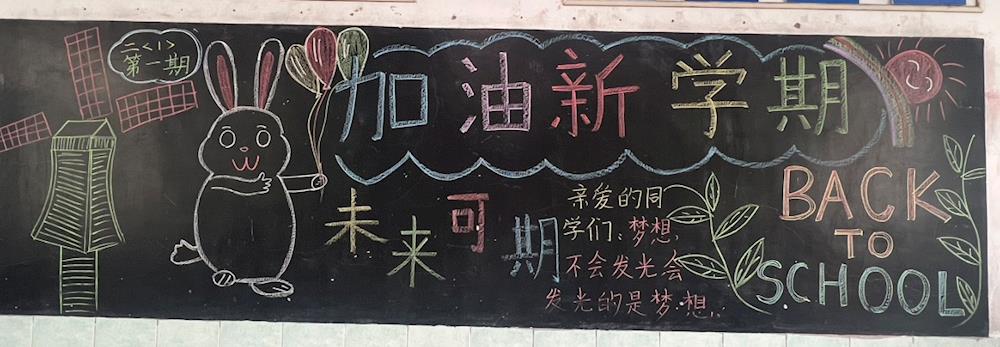 二<1>
第一期
加油新学期
未来可期
亲爱的同
学们：梦想
不会发光会
发光的是梦想
BACK
TO
SCHOOL